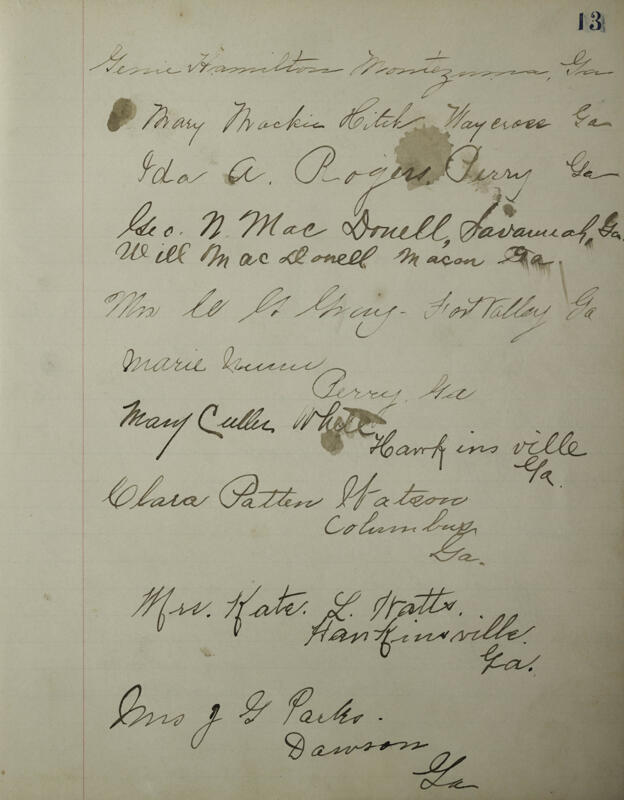 13
Genie Hamilton Montezuma, Ga
Mary Mackie Hitch Waycross Ga
Ida A. Rogers, Perry Ga
Geo. N. Mac Donell, Savannah, Ga.
Will Mac Donell Macon Ga.
Mrs Fort Valley Ga
Marie Nunn
Perry, Ga
Mary Culler White
Hawkinsville
Ga.
Clara Patten Watson
Columbus
Ga.
Mrs. Kate. L. Watts.
Hawkinsville.
Ga.
Mrs J G Parks.
Dawson
Ga